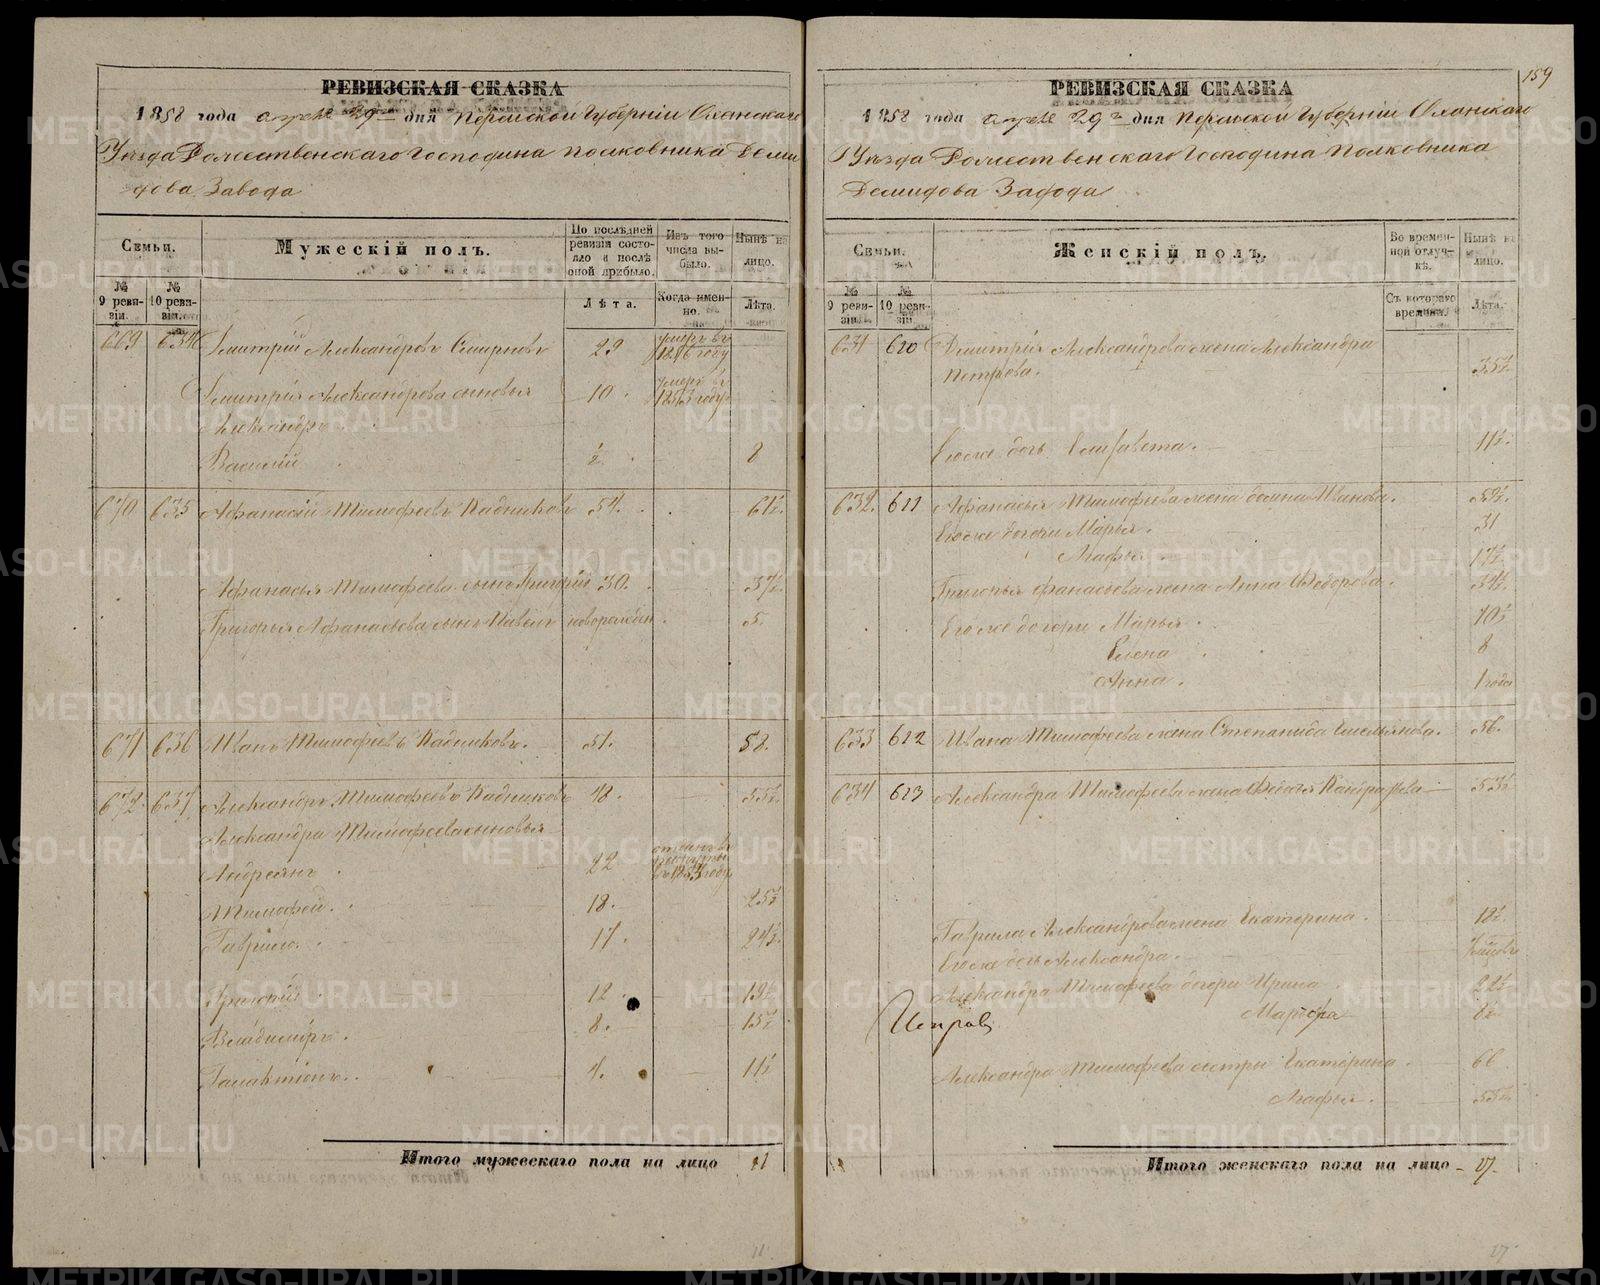 РЕВИЗСКАЯ СКАЗКА
1858 года апреля 29го дня Пермской Губерніи Оханскаго
Уезда Рожественскаго Господина полковника Деми
дова Завода
Семьи.
Мужескій полъ.
По последней ревизіи состояло и послѣ оной прибыло.
Изъ того числа выбыло.
Нынѣ на лицо.
№ 9 ревизіи.
№ 10 ревизіи.
Лѣта.
Когда именно.
Лѣта.
669 634 Дмитрій Александровъ Смирновъ 29 умеръ въ 1856 году
Дмитрія Александрова сыновья 10. умеръ въ 1853 году
Александръ
Василій ½ 8
670 635 Афанасій Тимофеевъ Кадниковъ 54. 61½.
Афанасья Тимофеева сынъ Григорій 30. 37½.
Григорья Афанасьева сынъ Павелъ новорожден. 5.
671 636 Иванъ Тимофеевъ Кадниковъ. 51. 58.
672. 637 Александръ Тимофеевъ Кадниковъ 48. 55½
Александра Тимофеева сыновья
Андреянъ. 22 отданъ въ рекруты въ 1853 году
Тимофей. 18. 25½
Гаврило. 17. 24½.
Григорій 12. 19½
Владимиръ. 8. 15½
Галактіонъ. 4. 11½
Итого мужескаго пола на лицо 11
159
РЕВИЗСКАЯ СКАЗКА
1858 года апреля 29го дня Пермской Губерніи Оханскаго
Уезда Рожественскаго Господина Полковника
Демидова Завода
Семьи.
Женскій полъ.
Во временной отлучкѣ.
Нынѣ на лицо.
№ 9 ревизіи.
№ 10 ревизіи.
Съ котораго времени.
Лѣта.
631 620 Дмитрія Александрова жена Александра
Петрова. 35½
Егоже дочь Елисавета. 11½.
632. 621 Афанасья Тимофеева жена Иванова. 59½.
Егоже дочери Марья. 31
Агафья 17½
Григорья Афанасьева жена Анна Федорова. 34½.
Егоже дочери Марья. 10½
Елена 8
Анна. 1 года
633 622 Ивана Тимофеева жена Степанида Емельянова. 56.
634 623 Александра Тимофеева жена 53½
Гаврила Александрова жена Екатерина. 18½
Егоже дочь Александра.
Александра Тимофеева дочери Ирина 22½
Марфа 8½
Александра Тимофеева сестры Екатерина. 66
Агафья. 55½
Итого женскаго пола на лицо 17.
11
17
METRIKI.GASO-URAL.RU